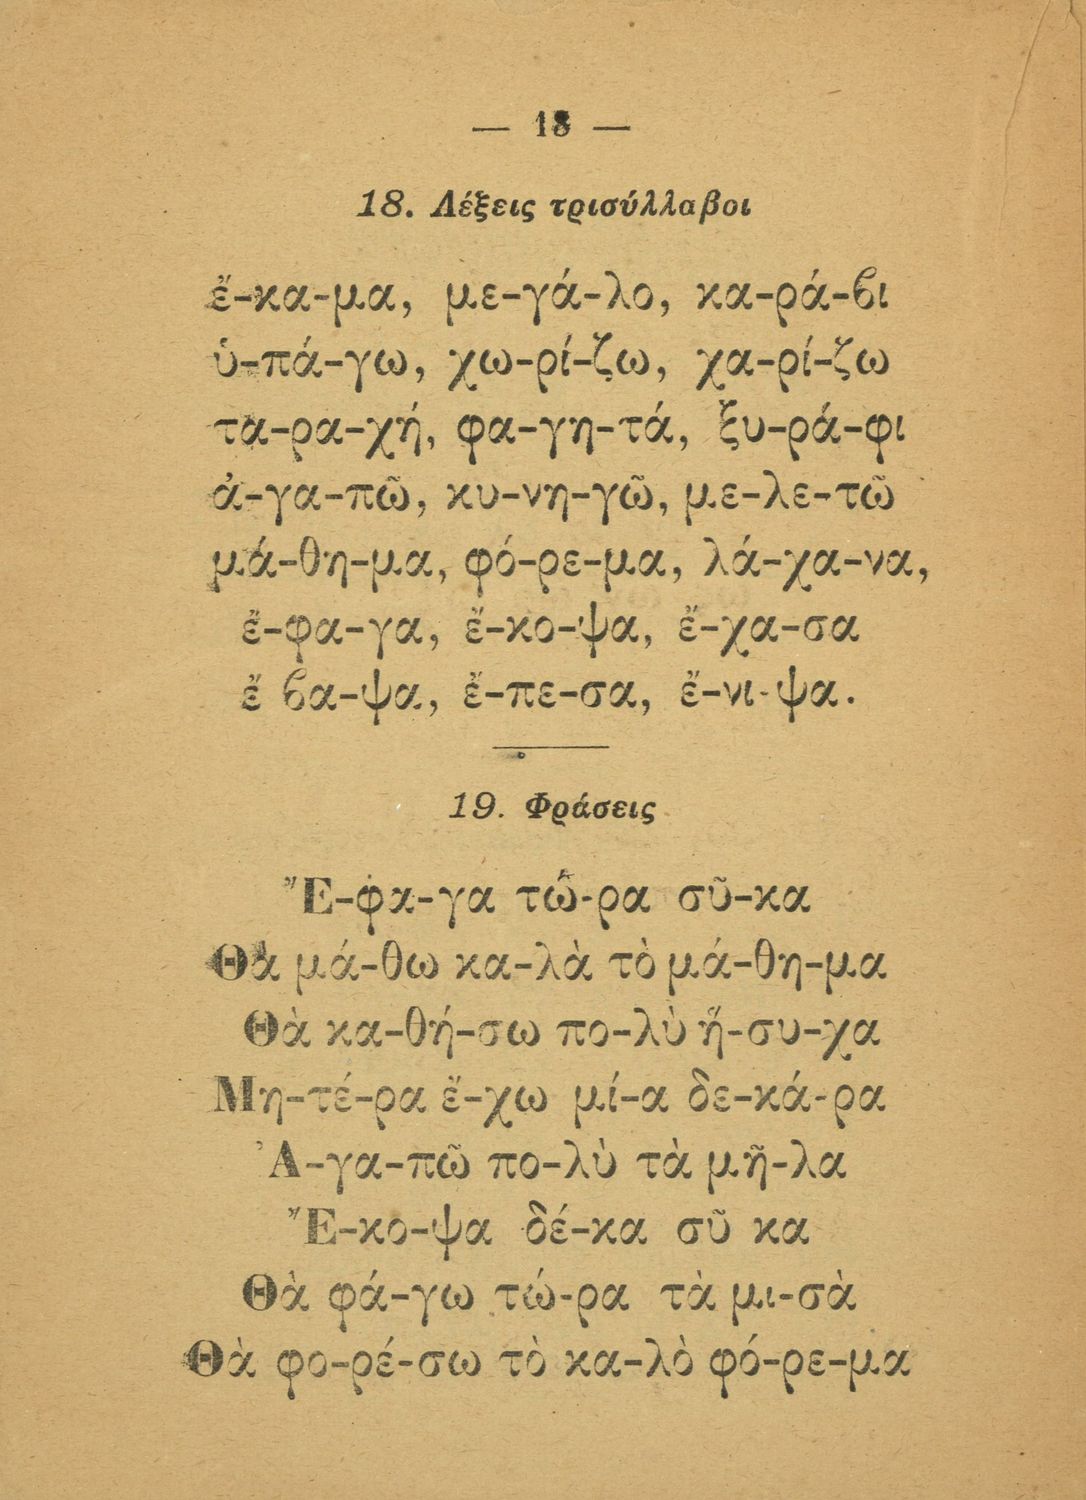 — 18 —
18. Λέξεις τρισύλλαβοι
ἔ-κα-μα, με-γά-λο, κα-ρά-ϐι
ὑ-πά-γω, χω-ρί-ζω, χα-ρί-ζω
τα-ρα-χή, φα-γη-τά, ξυ-ρά-φι
ἀ-γα-πῶ, κυ-νη-γῶ, με-λε-τῶ
μά-θη-μα, φό-ρε-μα, λά-χα-να,
ἔ-φα-γα, ἔ-κο-ψα, ἔ-χα-σα
ἔ ϐα-ψα, ἔ-πε-σα, ἔ-νι-ψα.
19. Φράσεις
Ἔ-φα-γα τώ-ρα σῦ-κα
Θὰ μά-θω κα-λὰ τὸ μά-θη-μα
Θὰ κα-θή-σω πο-λὺ ἥ-συ-χα
Μη-τέ-ρα ἔ-χω μί-α δε-κά-ρα
Ἀ-γα-πῶ πο-λὺ τὰ μῆ-λα
Ἔ-κο-ψα δέ-κα σῦ κα
Θὰ φά-γω τώ-ρα τὰ μι-σὰ
Θὰ φο-ρέ-σω τὸ κα-λὸ φό-ρε-μα